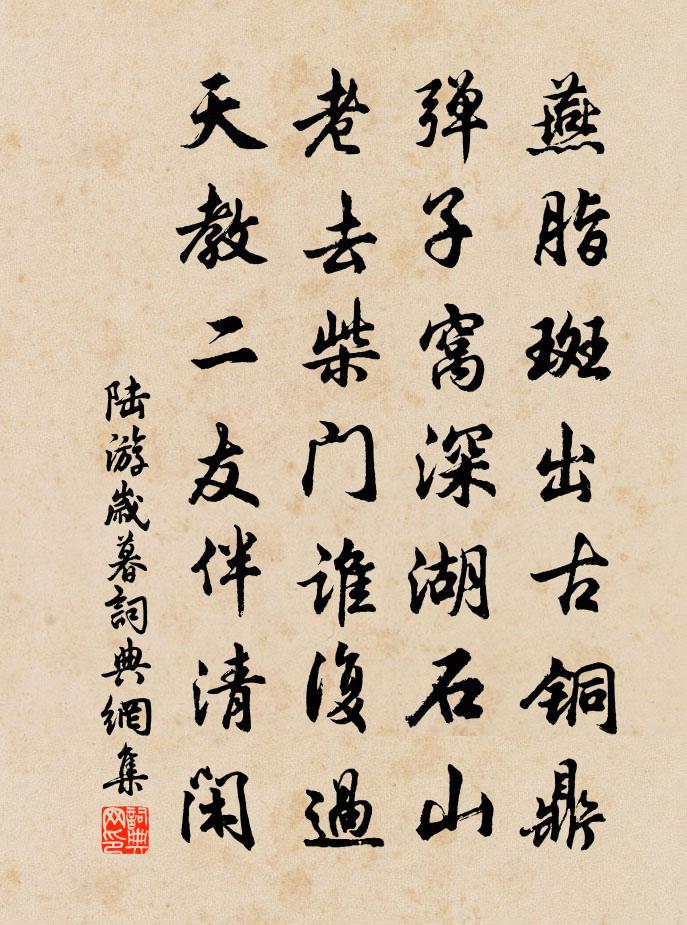 燕脂斑出古铜鼎
弹子窝深湖石山
老去柴门谁復過
天教二友伴清闲
陆游歲暮詞典網集
詞典
网印